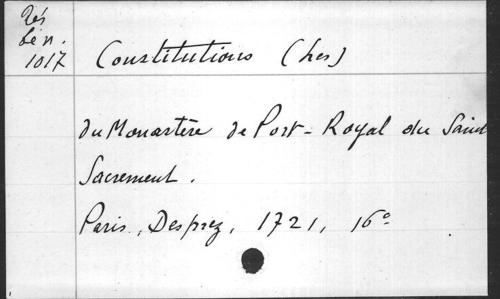 Rés
bén.
1017
Constitutions (Les)
du Monastère de Port-Royal du Saint
Sacrement.
Paris, Desprez, 1721, 16°